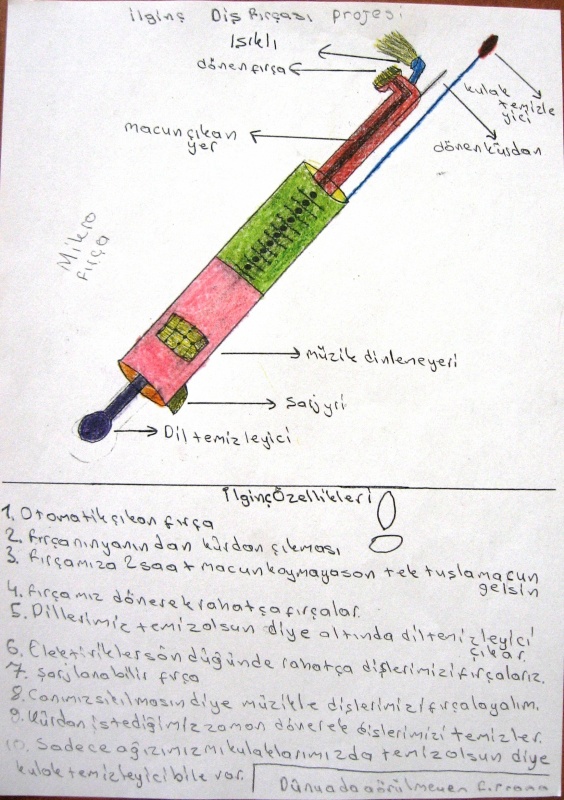 ilginç Diş fırçası projesi
Işıklı
dönenfırça
kulak
temizle
yici
macunçıkan
yer
dönenkürdan
Mikro
fırça
müzik dinlemeyeri
Şarjyri
Dil temizleyici
İlginçÖzellikleri
1. Otomatikçıkan fırça
2. fırçanınyanından kürdan çıkması
3. fırçamıza 2saat macunkoymayason tek tuşlamacun
gelsin
4. fırçamız dönerekrahatçafırçalar.
5. Dillerimiz temizolsun diye altında diltemizleyici
çıkar.
6. Elektiriklersöndüğünde rahatça dişlerimizifırçalarız.
7. Şarjlanabilir fırça
8. Canımızsıkılmasın diye müzikle dişlerimizifırçalayalım.
9. Kürdan istediğimizzaman dönerek dişlerimizi temizler.
10. Sadece ağızımızmıkulaklarımızda temizolsun diye
kulaktemizleyicibile var.
Dünyadagörülmeyen